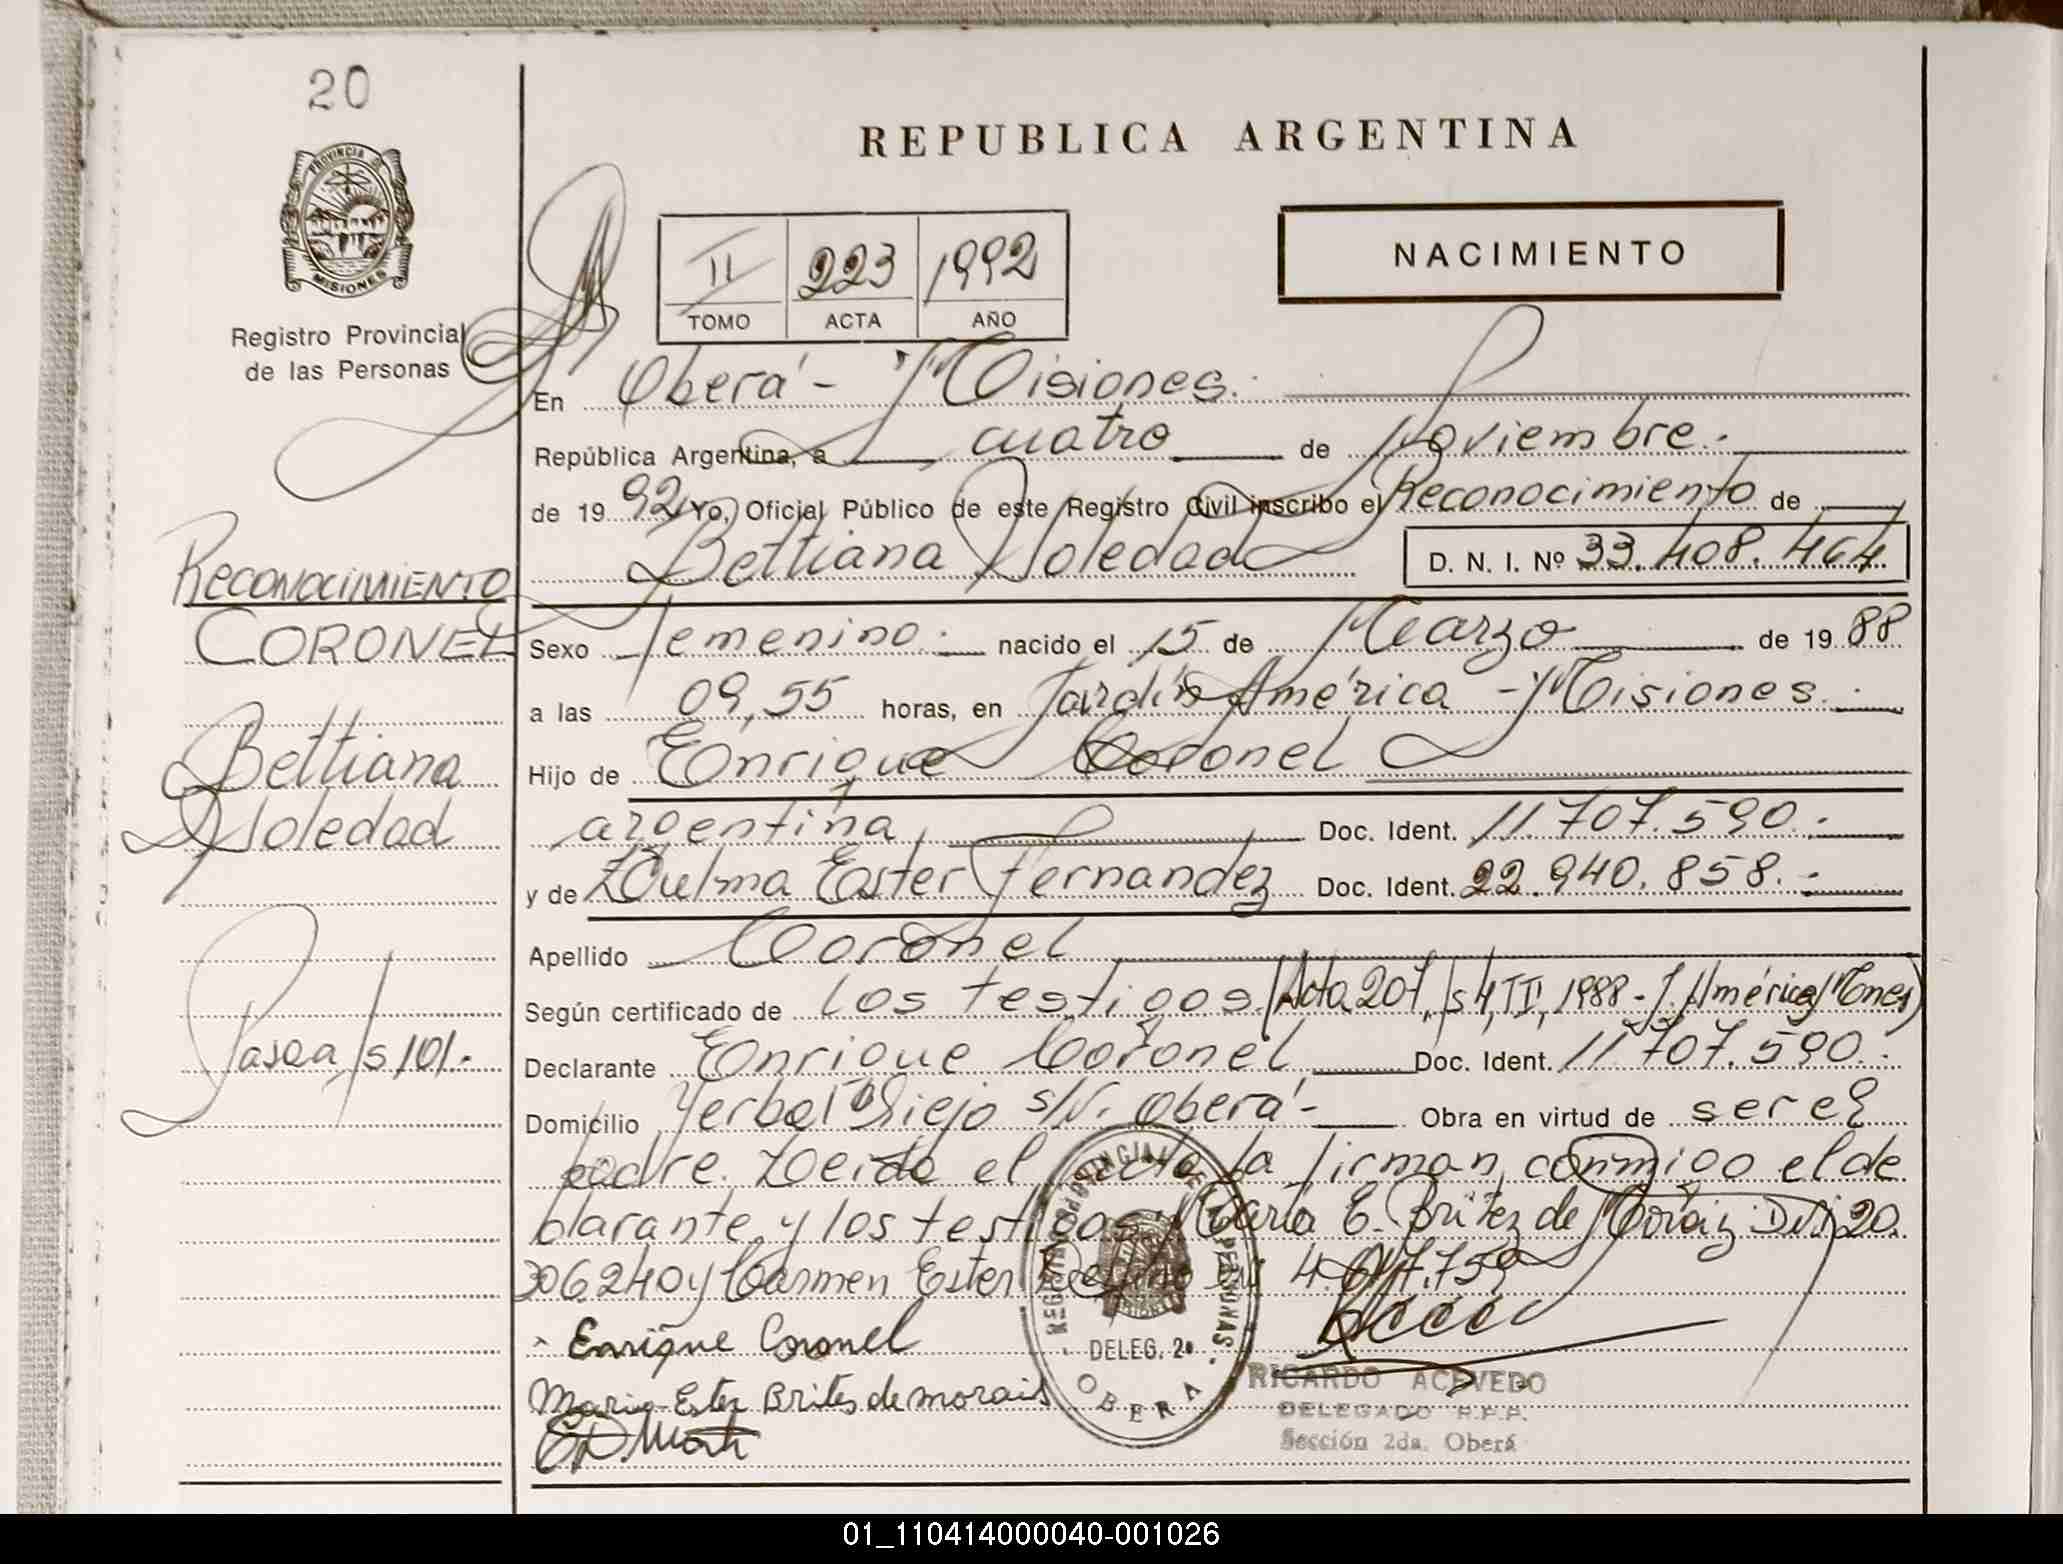 20
REPUBLICA ARGENTINA
PROVINCIA DE
MISIONES
Registro Provincial
de las Personas
II 223 1992
TOMO ACTA AÑO
NACIMIENTO
En Oberá - Misiones.
República Argentina, a cuatro de Noviembre.
de 19 92 Yo, Oficial Público de este Registro Civil inscribo el Reconocimiento de
Bettiana Soledad D. N. I. Nº 33.408.464
RECONOCIMIENTO
CORONEL
Bettiana
Soledad
Pasea fs 101.-
Sexo Femenino. nacido el 15 de Marzo de 19 88
a las 09,55 horas, en Jardín América - Misiones.
Hijo de Enrique Coronel
argentina, Doc. Ident. 11.707.590.-
y de Zulma Ester Fernandez Doc. Ident. 22.940.858.-
Apellido Coronel
Según certificado de los testigos. (Acta 207, fs 4, TII, 1988 - J. América Mnes)
Declarante Enrique Coronel Doc. Ident. 11.707.590.-
Domicilio Yerbal Viejo s/N. Oberá - Obra en virtud de ser el
padre. Leída el acta la firman conmigo el de
clarante y los testigos María E. Britez de Moraiz DNI 20.
306.240 y Carmen Ester
Enrique Coronel
Maria Ester Brites de morais
REGISTRO PROVINCIAL DE LAS PERSONAS
DELEG. 2a
OBERA
RICARDO ACEVEDO
DELEGADO R.P.P.
Sección 2da. Oberá
01_110414000040-001026